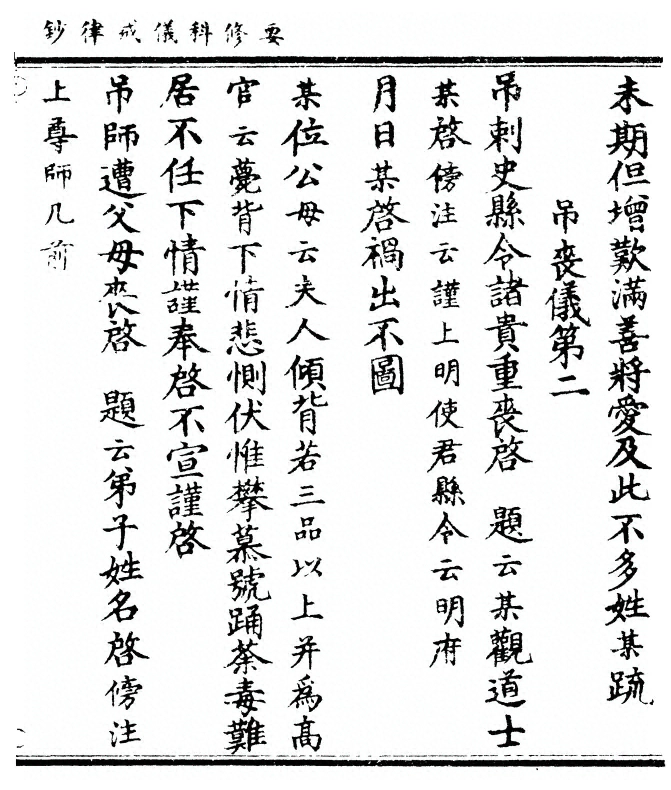 要修科儀戒律鈔
未期但增歎滿善將愛及此不多姓某䟽
吊喪儀第二
吊刺史縣令諸貴重喪啓　題云某觀道士
某啓傍注云謹上明使君縣令云明府
月日某啓禍出不圖
某位公母云夫人傾背若三品以上并爲高
官云薨背下情悲惻伏惟攀慕號踊荼毒難
居不任下情謹奉啓不宣謹啓
吊師遭父母喪啓　題云弟子姓名啓傍注
上尊師几前